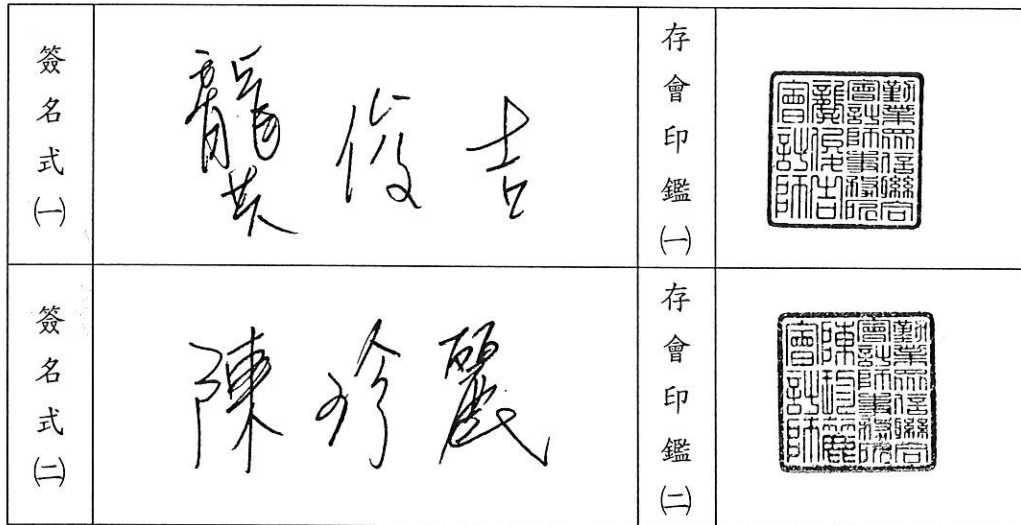 簽名式㈠
龔俊吉
存會印鑑㈠
勤業眾信聯合
會計師事務所
龔俊吉
會計師
簽名式㈡
陳珍麗
存會印鑑㈡
勤業眾信聯合
會計師事務所
陳珍麗
會計師